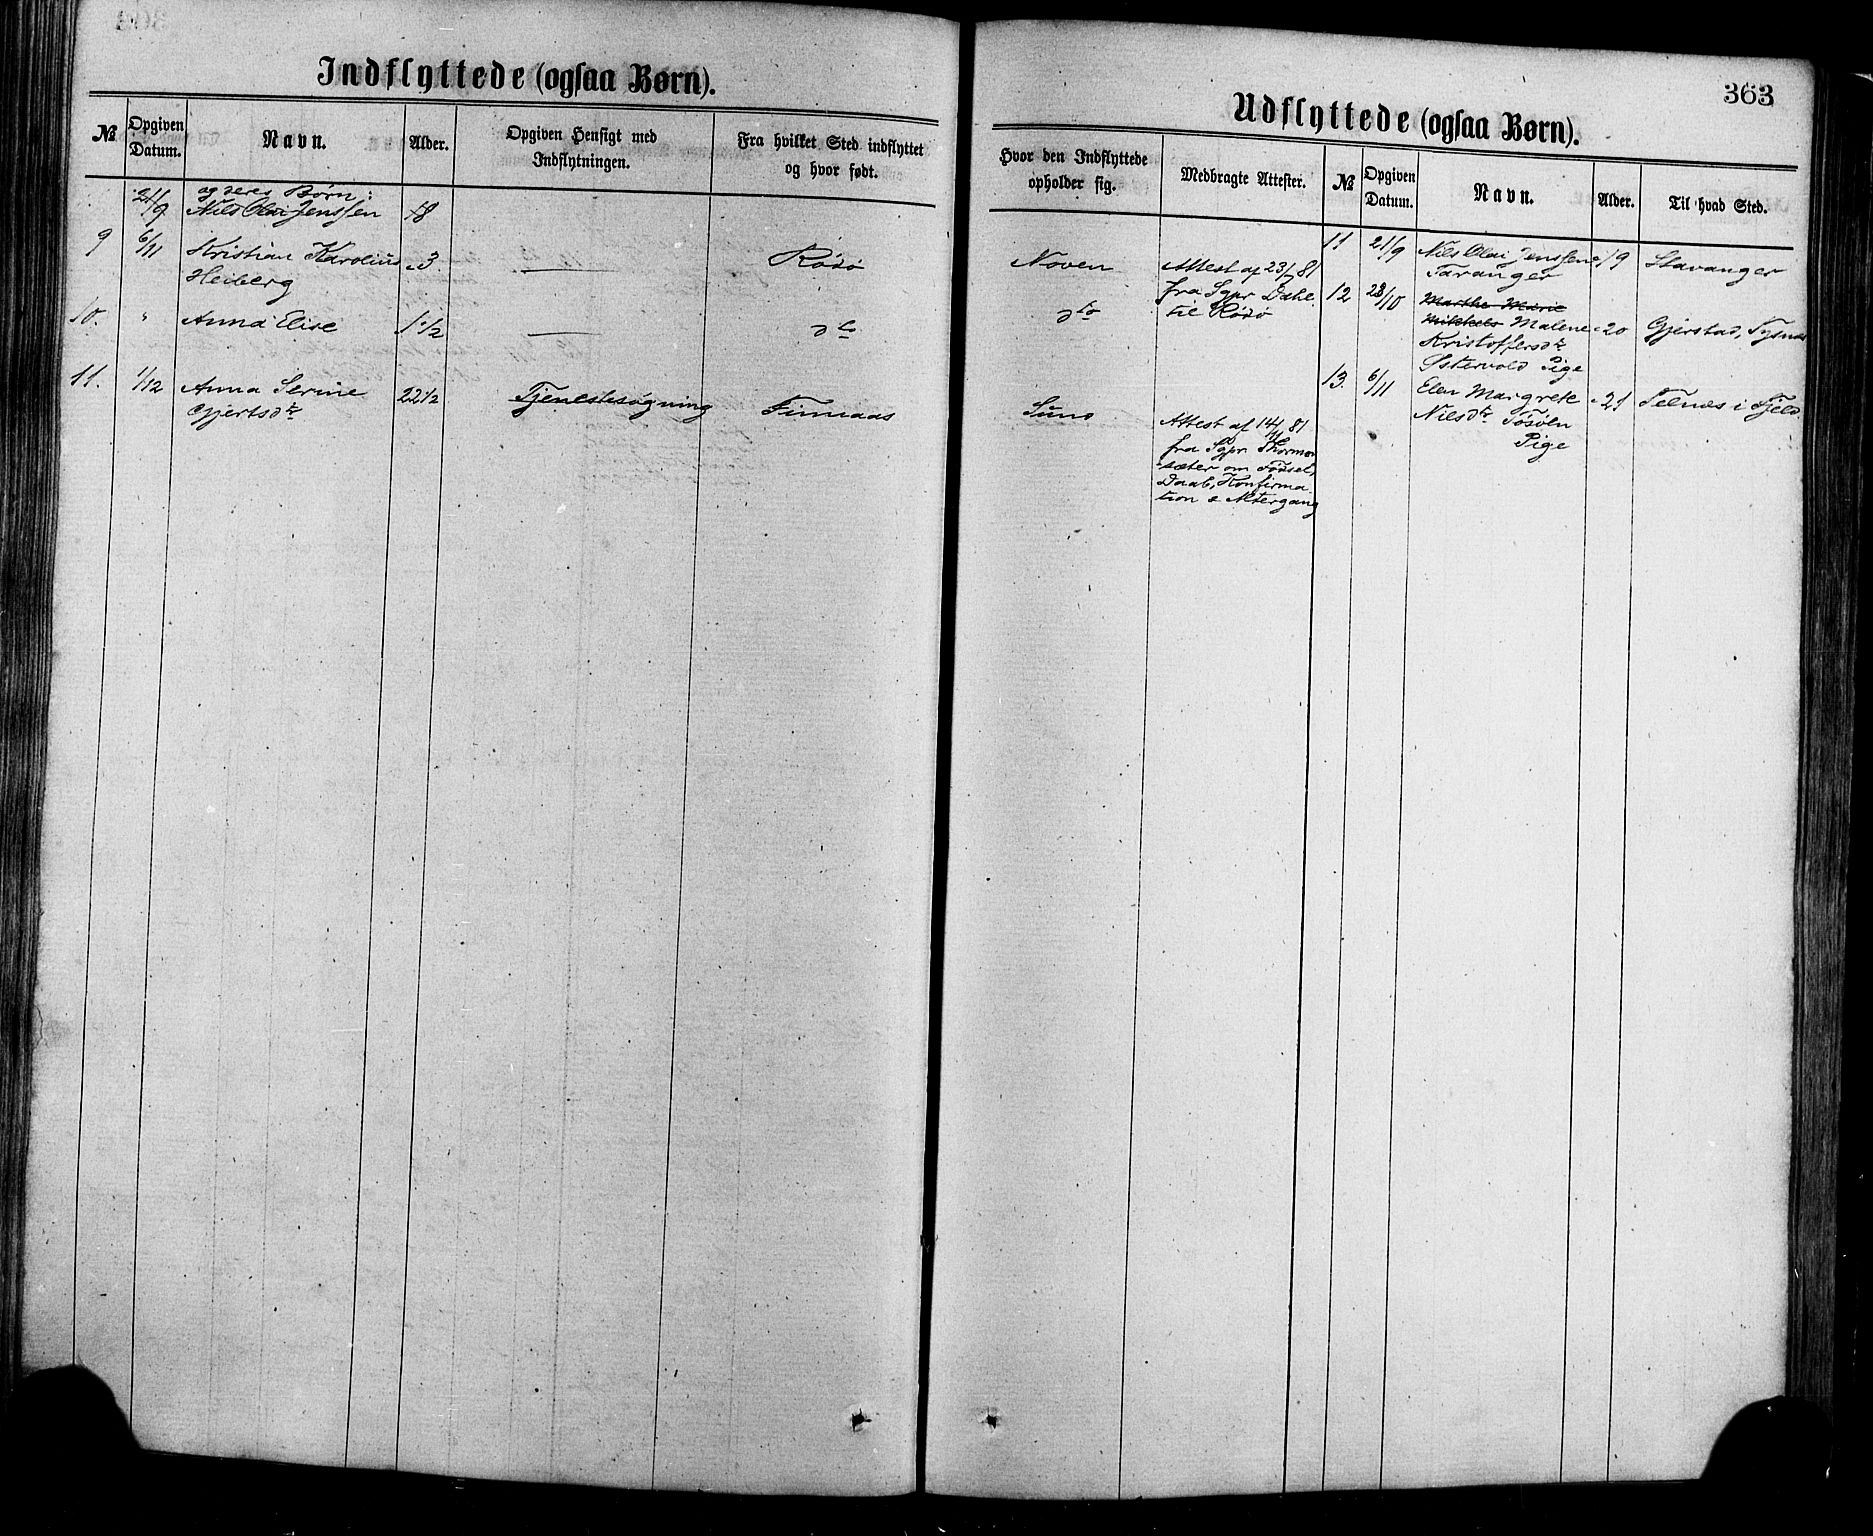 Indflyttede (ogsaa Børn).
№
Opgiven Datum.
Navn.
Alder.
Opgiven Hensigt med Indflytningen.
Fra hvilket Sted indflyttet og hvor født.
og deres Børn:
21/9 Nils Olai Jenssen 18
9 6/11 Kristian Karolius 3 — Rödö
Heiberg
10. " Anna Elise 1 1/2 — do
11. 1/12 Anna Serine 22 1/2 Tjenestesøgning Finnaas
Gjertsdr
363
Udflyttede (ogsaa Børn).
Hvor den Indflyttede opholder sig.
Medbragte Attester.
№
Opgiven Datum.
Navn.
Alder.
Til hvad Sted.
Noven
Attest af 23/7 81
fra Sgpr Dahl
do
til Rödö
Sund
Attest af 14/11 81
fra Sgpr Thormod
sæter om Fødsel,
Daab, Konfirma
tion & Altergang
11 21/9 Nils Olai Jenssen 19 Stavanger
Taranger
12 23/10 Marthe Marie
Mikkels Malene 20 Gjerstad, Tysnæs
Kristoffersdr
Østervold Pige
13. 6/11 Elen Margrete 21 Telnæs i Fjeld
Nilsdr Tösöln
Pige